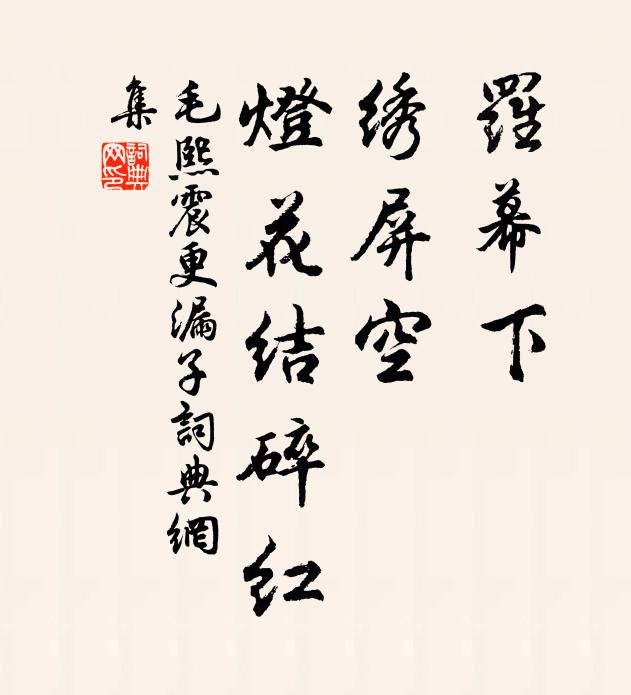 羅幕下
绣屏空
燈花结碎红
毛熙震更漏子詞典網
集
詞典网印